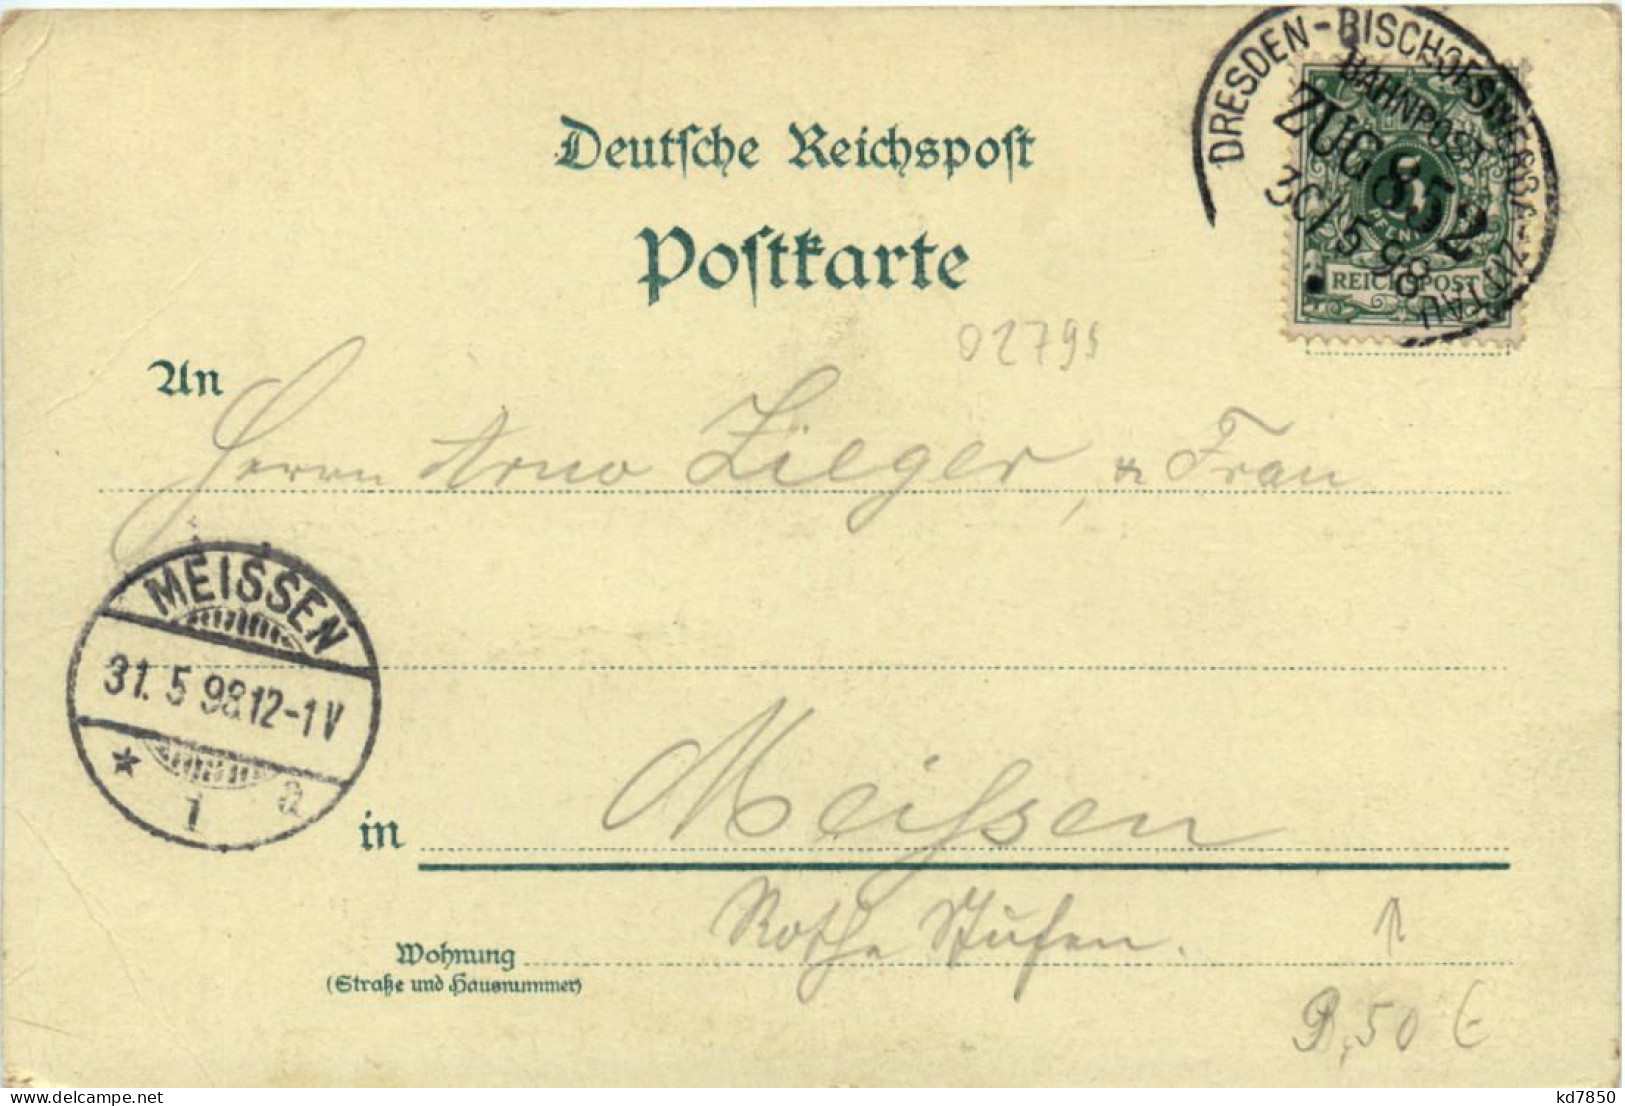 DRESDEN-BISCHOFSWERDA-ZITTAU
BAHNPOST
ZUG 852
30/5 98
REICHSPOST
Deutsche Reichspost
Postkarte
02795
An
Herrn Arno Zieger, & Frau
MEISSEN
31. 5 98 12-1 V
* 1 a
in Meissen
Rothe Stufen.
Wohnung
(Straße und Hausnummer)
9,50 €
delcampe.net
kd7850